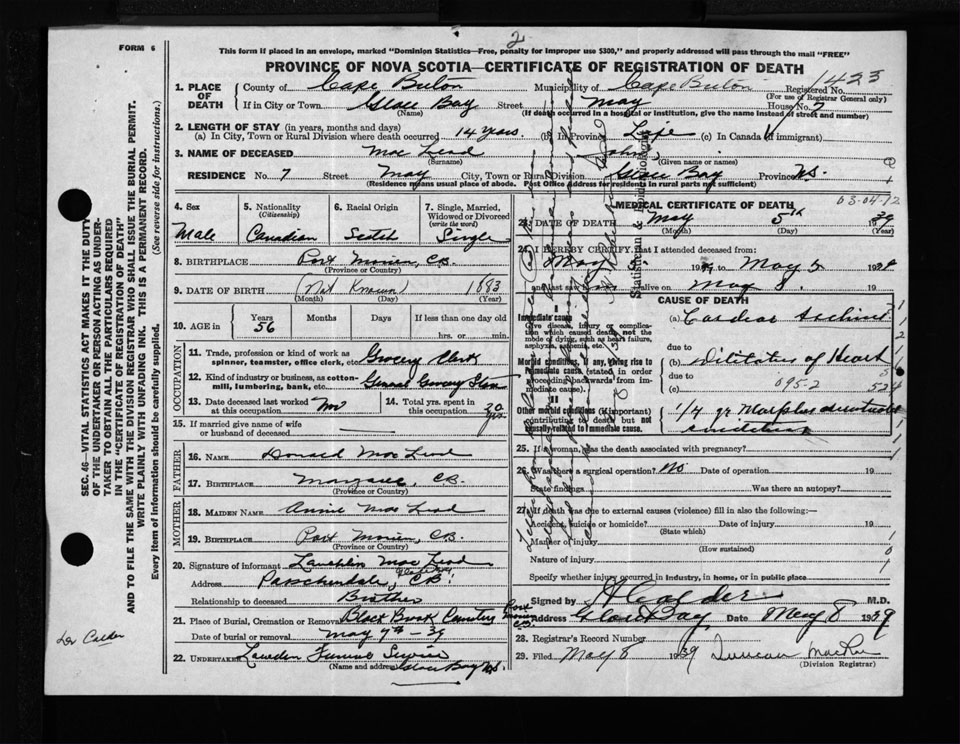 2
FORM 6
This form if placed in an envelope, marked "Dominion Statistics—Free, penalty for improper use $300," and properly addressed will pass through the mail "FREE"
PROVINCE OF NOVA SCOTIA—CERTIFICATE OF REGISTRATION OF DEATH
1423
1. PLACE OF DEATH
County of Cape Breton Municipality of Cape Breton Registered No.
(For use of Registrar General only)
If in City or Town Glace Bay Street May House No. 7
(Name) (If death occurred in a hospital or institution, give the name instead of street and number)
2. LENGTH OF STAY (in years, months and days)
(a) In City, Town or Rural Division where death occurred 14 years. (b) In Province Life (c) In Canada (if immigrant)
3. NAME OF DECEASED Mac Leod John
(Surname) (Given name or names)
RESIDENCE No. 7 Street May City, Town or Rural Division Glace Bay Province N.S.
(Residence means usual place of abode. Post Office address for residents in rural parts not sufficient)
SEC. 46—VITAL STATISTICS ACT MAKES IT THE DUTY
OF THE UNDERTAKER OR PERSON ACTING AS UNDER-
TAKER TO OBTAIN ALL THE PARTICULARS REQUIRED
IN THE "CERTIFICATE OF REGISTRATION OF DEATH"
AND TO FILE THE SAME WITH THE DIVISION REGISTRAR WHO SHALL ISSUE THE BURIAL PERMIT.
WRITE PLAINLY WITH UNFADING INK. THIS IS A PERMANENT RECORD.
Every item of Information should be carefully supplied. (See reverse side for instructions.)
4. Sex
Male
5. Nationality
(Citizenship)
Canadian
6. Racial Origin
Scotch
7. Single, Married,
Widowed or Divorced
(write the word)
Single
8. BIRTHPLACE Port Morien, C.B.
(Province or Country)
9. DATE OF BIRTH (Not Known) 1883
(Month) (Day) (Year)
10. AGE in
Years Months Days If less than one day
56 hrs. or min.
OCCUPATION
11. Trade, profession or kind of work as
spinner, teamster, office clerk, etc. Grocery Clerk
12. Kind of industry or business, as cotton-
mill, lumbering, bank, etc. General Grocery Store
13. Date deceased last worked
at this occupation
14. Total yrs. spent in
this occupation 20 yrs.
15. If married give name of wife
or husband of deceased
FATHER
16. NAME Donald Mac Leod
17. BIRTHPLACE Margaree, C.B.
(Province or Country)
MOTHER
18. MAIDEN NAME Annie Mac Leod
19. BIRTHPLACE Port Morien, C.B.
(Province or Country)
20. Signature of informant Lauchlin Mac Leod
Address Passchendale, C.B.
Relationship to deceased Brother
21. Place of Burial, Cremation or Removal Black Brook Cemetery Port Morien C.B.
Date of burial or removal May 7th - 39
22. Undertaker Funeral Service
(Name and address) Glace Bay N.S.
MEDICAL CERTIFICATE OF DEATH
03-04-72
23. DATE OF DEATH May 5th 1939
(Month) (Day) (Year)
24. I HEREBY CERTIFY, that I attended deceased from:
May 1939 to May 5 1939
and last saw alive on May 19
Statistician & Epidemiologist
CAUSE OF DEATH
Immediate cause
Give disease, injury or complica-
tion which caused death, not the
mode of dying, such as heart failure,
asphyxia, asthenia, etc.
(a) Cardiac
due to
Morbid conditions, if any, giving rise to
immediate cause (stated in order
proceeding backwards from im-
mediate cause).
(b) of Heart
due to
(c) 095-2
Other morbid conditions (if important)
contributing to death but not
causally related to immediate cause.
1/4 gr
25. If a woman, was the death associated with pregnancy?
26. Was there a surgical operation? No Date of operation 19
State findings Was there an autopsy?
27. If death was due to external causes (violence) fill in also the following:—
Accident, suicide or homicide? Date of injury 19
(State which)
Manner of injury
(How sustained)
Nature of injury
Specify whether injury occurred in industry, in home, or in public place
Signed by H Calder M.D.
Address Glace Bay Date May 8 1939
28. Registrar's Record Number
29. Filed May 8 1939 Duncan MacRae
(Division Registrar)
Dr Calder